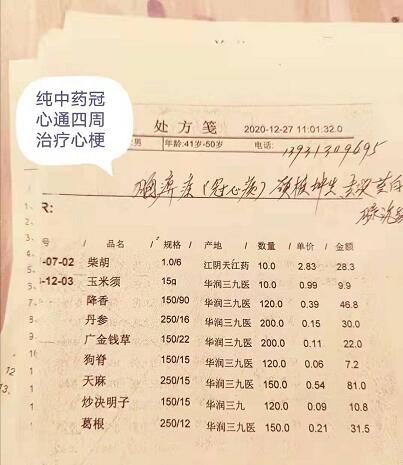 纯中药冠
心通四周
治疗心梗
处方笺
2020-12-27 11:01:32.0
男
年龄:41岁-50岁
电话:
R:
号 / 品名 / 规格 / 产地 数量 / 单价 / 金额
-07-02 柴胡 1.0/6 江阴天江药 10.0 2.83 28.3
-12-03 玉米须 15g 华润三九医 10.0 0.99 9.9
降香 150/90 华润三九医 120.0 0.39 46.8
丹参 250/16 华润三九医 200.0 0.15 30.0
广金钱草 150/22 华润三九医 200.0 0.11 22.0
狗脊 150/15 华润三九医 120.0 0.06 7.2
天麻 250/15 华润三九医 150.0 0.54 81.0
炒决明子 250/15 华润三九 120.0 0.09 10.8
葛根 250/12 华润三九医 150.0 0.21 31.5
12
13.